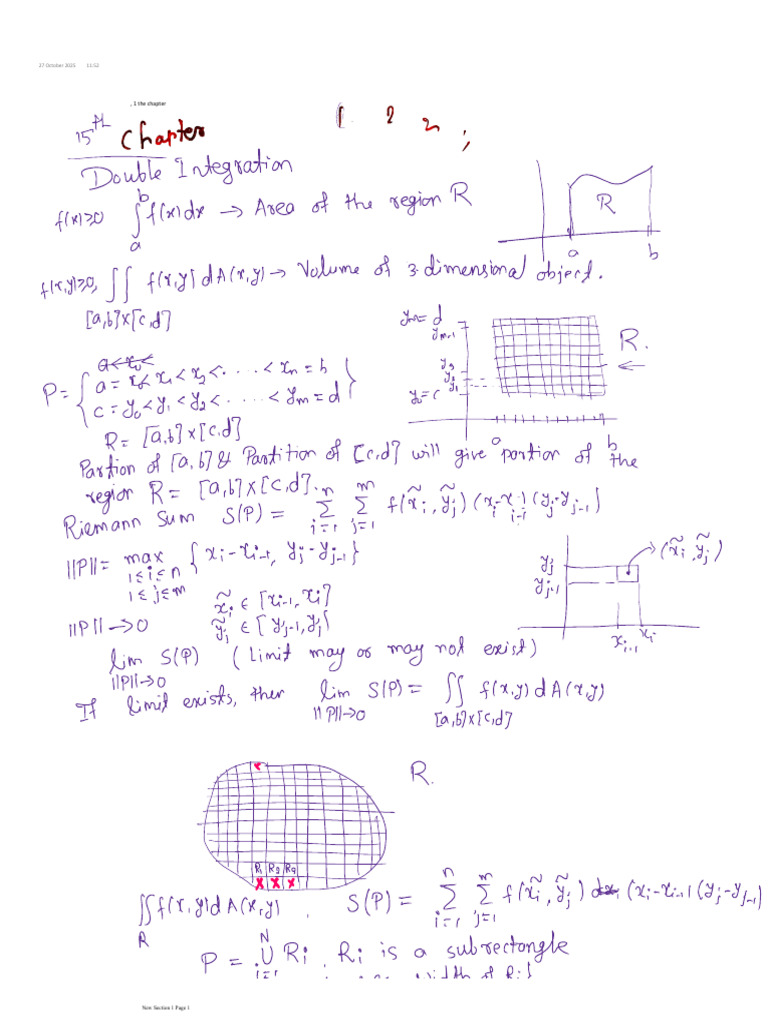 27 October 2025 11:52
, 1 the chapter
1 2 2 ;
15th Chapter
Double Integration
f(x)≥0 ∫_a^b f(x)dx → Area of the region R
R
a b
f(x,y)≥0, ∬_{[a,b]×[c,d]} f(x,y) dA(x,y) → Volume of 3-dimensional object.
a<x₀<
P = { a = x₀< x₁ < x₂ < . . . . < xₙ = b
c = y₀ < y₁ < y₂ < . . . . < yₘ = d }
yₘ = d
yₘ₋₁
y₃
y₂
y₁
y₀ = c
R.
a b
R = [a,b]×[c,d]
Partion of [a,b] & Partition of [c,d] will give portion of the
region R = [a,b]×[c,d].
Riemann Sum S(P) = Σ_{i=1}^n Σ_{j=1}^m f(x̃ᵢ, ỹⱼ) (xᵢ-xᵢ₋₁) (yⱼ-yⱼ₋₁)
||P|| = max_{1≤i≤n, 1≤j≤m} { xᵢ-xᵢ₋₁, yⱼ-yⱼ₋₁ }
yⱼ
yⱼ₋₁
(x̃ᵢ, ỹⱼ)
xᵢ₋₁ xᵢ
x̃ᵢ ∈ [xᵢ₋₁, xᵢ]
||P|| → 0 ỹⱼ ∈ [yⱼ₋₁, yⱼ]
lim_{||P||→0} S(P) (Limit may or may not exist)
If limit exists, then lim_{||P||→0} S(P) = ∬_{[a,b]×[c,d]} f(x,y) dA(x,y)
R.
x
R₁ R₃ R₄
x x x
∬_R f(x,y)dA(x,y) . S(P) = Σ_{i=1}^n Σ_{j=1}^m f(x̃ᵢ, ỹⱼ) (xᵢ-xᵢ₋₁ (yⱼ-yⱼ₋₁)
P = ∪_{i=1}^N Rᵢ . Rᵢ is a subrectangle
width of Rᵢ}
New Section 1 Page 1